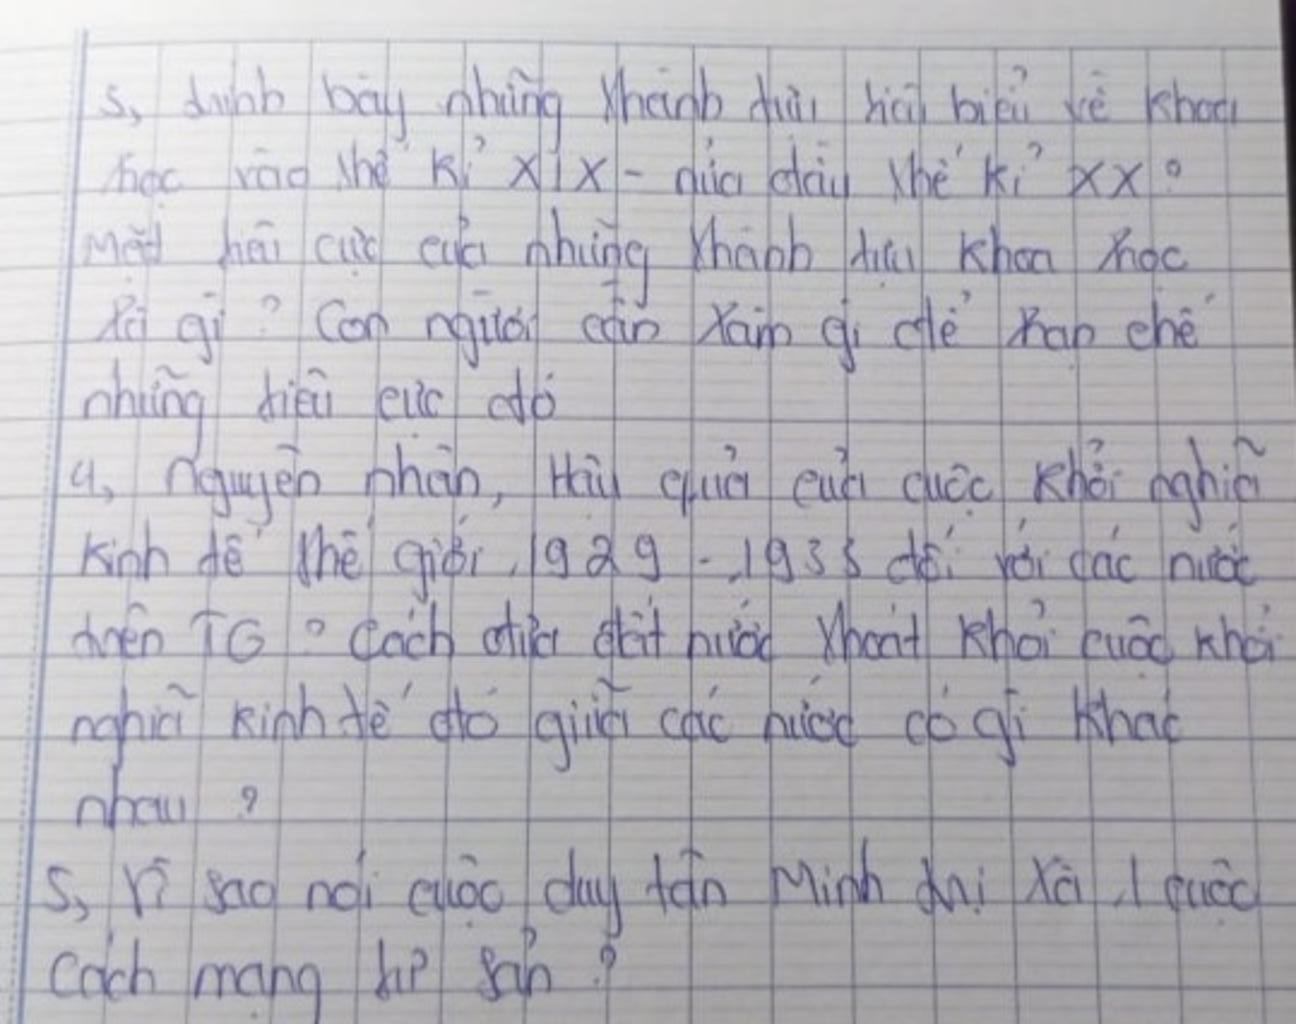 3, trình bày những thành tựu tiêu biểu về khoa
học vào thế kỉ XIX - nửa đầu thế kỉ XX?
Mặt tiêu cực của những thành tựu khoa học
là gì? Con người cần làm gì để hạn chế
những tiêu cực đó
4, Nguyên nhân, Hậu quả của cuộc khởi nghĩa
kinh tế thế giới 1929 - 1933 đối với các nước
trên TG? Cách đưa đất nước thoát khỏi cuộc khởi
nghĩa kinh tế đó giữa các nước có gì khác
nhau?
5, Vì sao nói cuộc duy tân Minh trị là 1 cuộc
cách mạng tư sản?